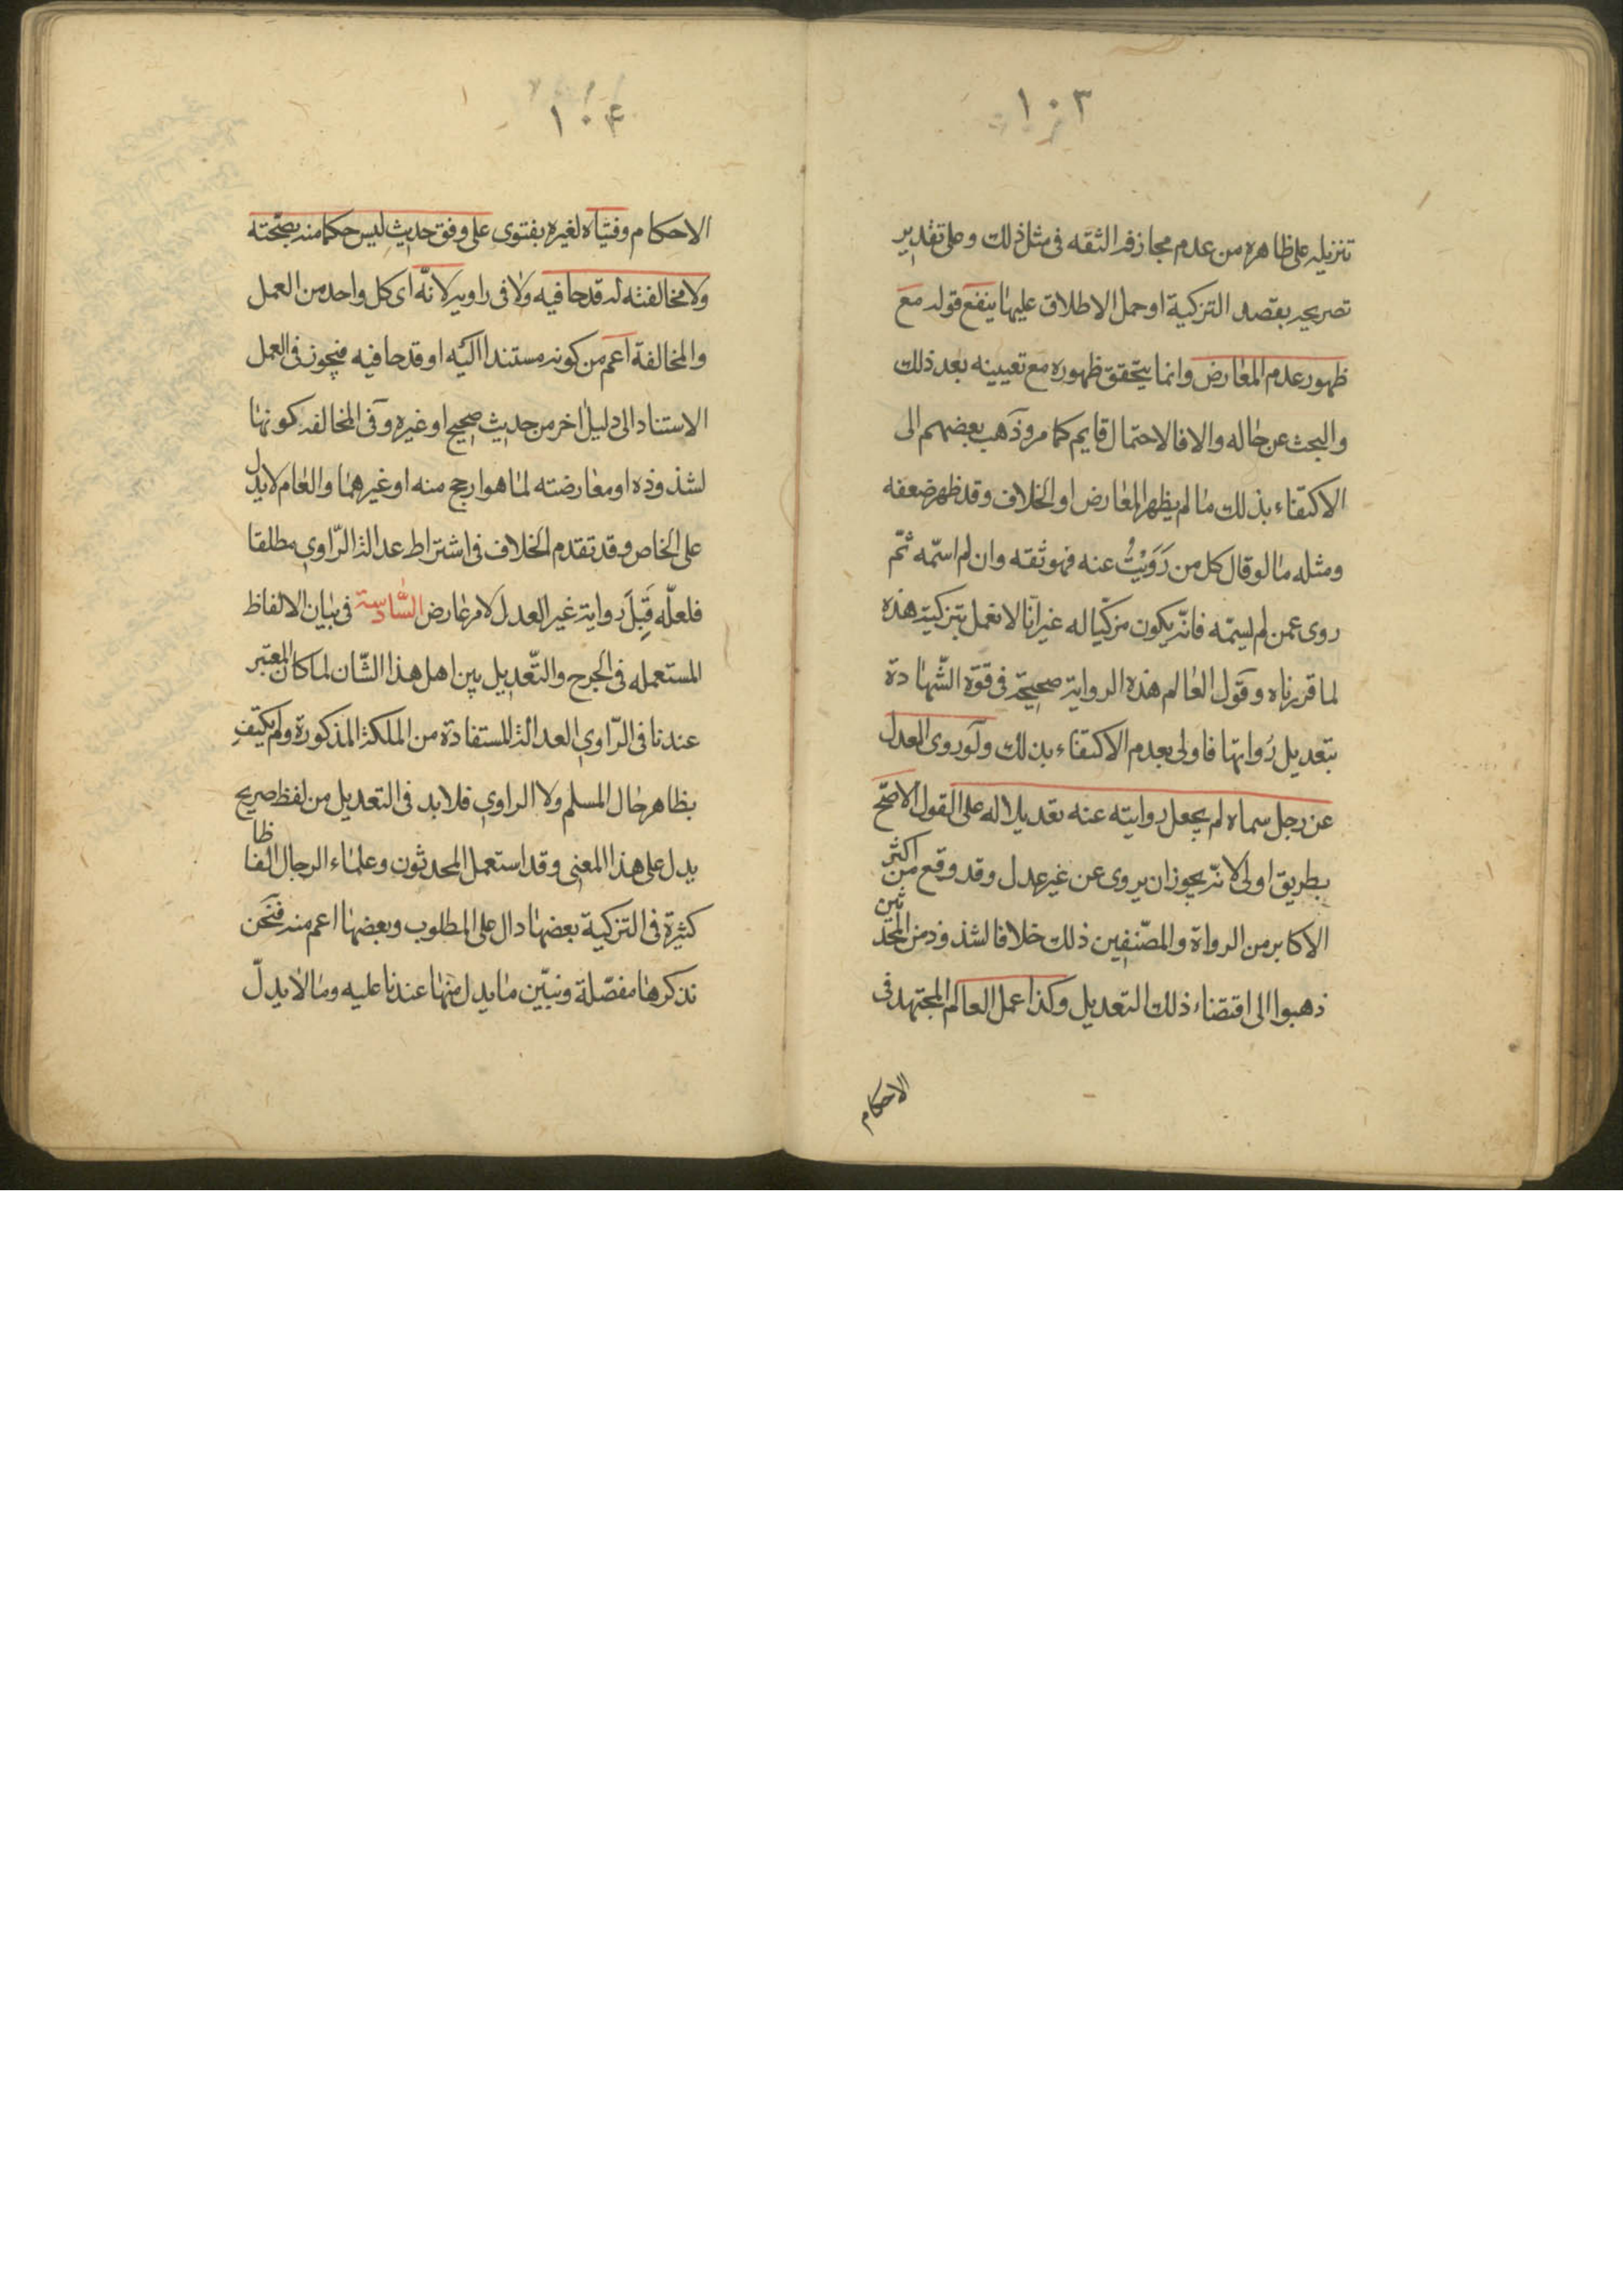 ١٠٣
تنزيله على ظاهره من عدم مجازفه الثقه فى مثل ذلك وعلى تقدير
تصريحه بقصد التزكية او حمل الاطلاق عليها ينفع قوله مع
ظهور عدم المعارض وانما يتحقق ظهوره مع تعيينه بعد ذلك
والبحث عن حاله والا فالاحتمال قايم كما مر وذهب بعضهم الى
الاكتفاء بذلك ما لم يظهر المعارض او الخلاف وقد ظهر ضعفه
ومثله ما لو قال كل من رَوَيْتُ عنه فهو ثقه وان لم اسمّه ثمّ
روى عمن لم يسمّه فانّه يكون مزكّيا له غير انّا لا نعمل بتزكيته هذه
لما قررناه وقول العالم هذه الرواية صحيحة فى قوّة الشّهادة
بتعديل رُواتها فاولى بعدم الاكتفاء بذلك ولو روى العدل
عن رجل سماه لم يجعل روايته عنه تعديلا له على القول الاصّح
بطريق اولى لانّه يجوز ان يروى عن غير عدل وقد وقع من اكثر
الاكابر من الرواة والمصّنفين ذلك خلافا لشذوذ من المحدثين
ذهبوا الى اقتضاء ذلك التعديل وكذا عمل العالم المجتهد فى
الاحكام
١٠۴
الاحكام وفتياه لغيره بفتوى على وفق حديث ليس حكما منه بصّحته
ولا مخالفته له قدحا فيه ولا فى راويه لانّه اى كل واحد من العمل
والمخالفة اعم من كونه مستندا اليه او قدحا فيه فيجوز فى العمل
الاستناد الى دليل اخر من حديث صحيح او غيره وفى المخالفه كونها
لشذوذه او معارضته لما هو ارجح منه او غيرهما والعام لا يدل
على الخاص وقد تقدم الخلاف فى اشتراط عدالة الرّاوى مطلقا
فلعلّه قَبِلَ رواية غير العدل لامر عارض السّادسة فى بيان الالفاظ
المستعمله فى الجرح والتّعديل بين اهل هذا الشّان لما كان المعتبر
عندنا فى الرّاوى العدالة المستفادة من الملكة المذكورة ولم يكتفِ
بظاهر حال المسلم ولا الراوى فلابد فى التعديل من لفظ صريح
يدل على هذا المعنى وقد استعمل المحدثون وعلماء الرجال الفاظا
كثيرة فى التزكية بعضها دال على المطلوب وبعضها اعم منه فنحن
نذكرها مفصّلة ونبيّن ما يدل منها عندنا عليه وما لا يدلّ